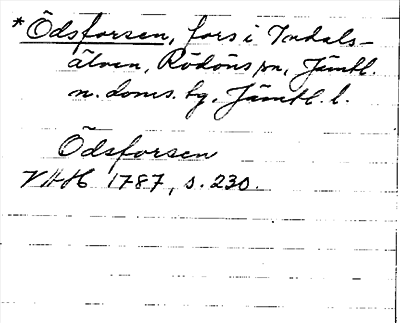 * Ödsforsen, fors i Indals-
älven, Rödöns sn, Jämtl.
n. doms. tg, Jämtl. l.
Ödsforsen
VHH 1787, s. 230.